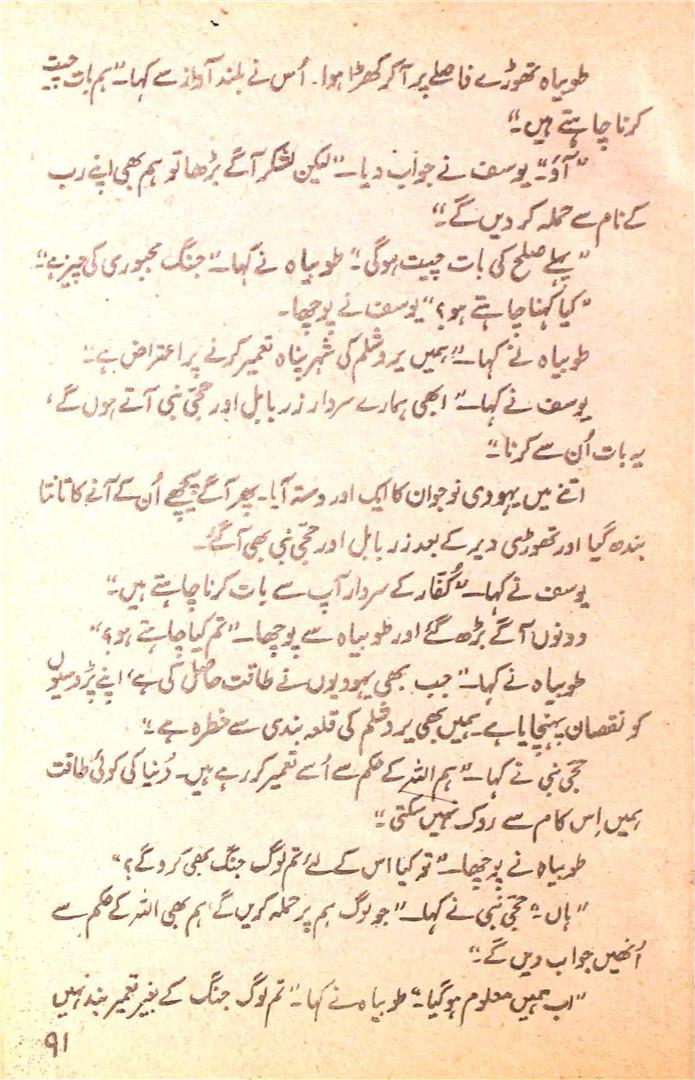 طوبیاہ تھوڑے فاصلے پر آ کر کھڑا ہوا۔ اُس نے بلند آواز سے کہا۔ "ہم بات چیت
کرنا چاہتے ہیں۔"
"آؤ۔" یوسف نے جواب دیا۔ "لیکن لشکر آگے بڑھا تو ہم بھی اپنے رب
کے نام سے حملہ کر دیں گے۔"
"پہلے صلح کی بات چیت ہوگی۔" طوبیاہ نے کہا۔ "جنگ مجبوری کی چیز ہے۔"
"کیا کہنا چاہتے ہو؟" یوسف نے پوچھا۔
طوبیاہ نے کہا۔ "ہمیں یروشلم کی شہر پناہ تعمیر کرنے پر اعتراض ہے۔"
یوسف نے کہا۔ "ابھی ہمارے سردار زر بابل اور حجّی نبی آتے ہوں گے،
یہ بات اُن سے کرنا۔"
اتنے میں یہودی نوجوان کا ایک اور دستہ آیا۔ پھر آگے پیچھے اُن کے آنے کا تانتا
بندھ گیا اور تھوڑی دیر کے بعد زر بابل اور حجّی نبی بھی آ گئے۔
یوسف نے کہا۔ "کُفّار کے سردار آپ سے بات کرنا چاہتے ہیں۔"
دونوں آگے بڑھ گئے اور طوبیاہ سے پوچھا۔ "تم کیا چاہتے ہو؟"
طوبیاہ نے کہا۔ "جب بھی یہودیوں نے طاقت حاصل کی ہے، اپنے پڑوسیوں
کو نقصان پہنچایا ہے۔ ہمیں بھی یروشلم کی قلعہ بندی سے خطرہ ہے۔"
حجّی نبی نے کہا۔ "ہم اللہ کے حکم سے اُسے تعمیر کر رہے ہیں۔ دُنیا کی کوئی طاقت
ہمیں اِس کام سے روک نہیں سکتی۔"
طوبیاہ نے پوچھا۔ "تو کیا اس کے لئے تم لوگ جنگ بھی کرو گے؟"
"ہاں۔" حجّی نبی نے کہا۔ "جو لوگ ہم پر حملہ کریں گے ہم بھی اللہ کے حکم سے
اُنھیں جواب دیں گے۔"
"اب ہمیں معلوم ہو گیا۔" طوبیاہ نے کہا۔ "تم لوگ جنگ کے بغیر تعمیر بند نہیں
۹۱